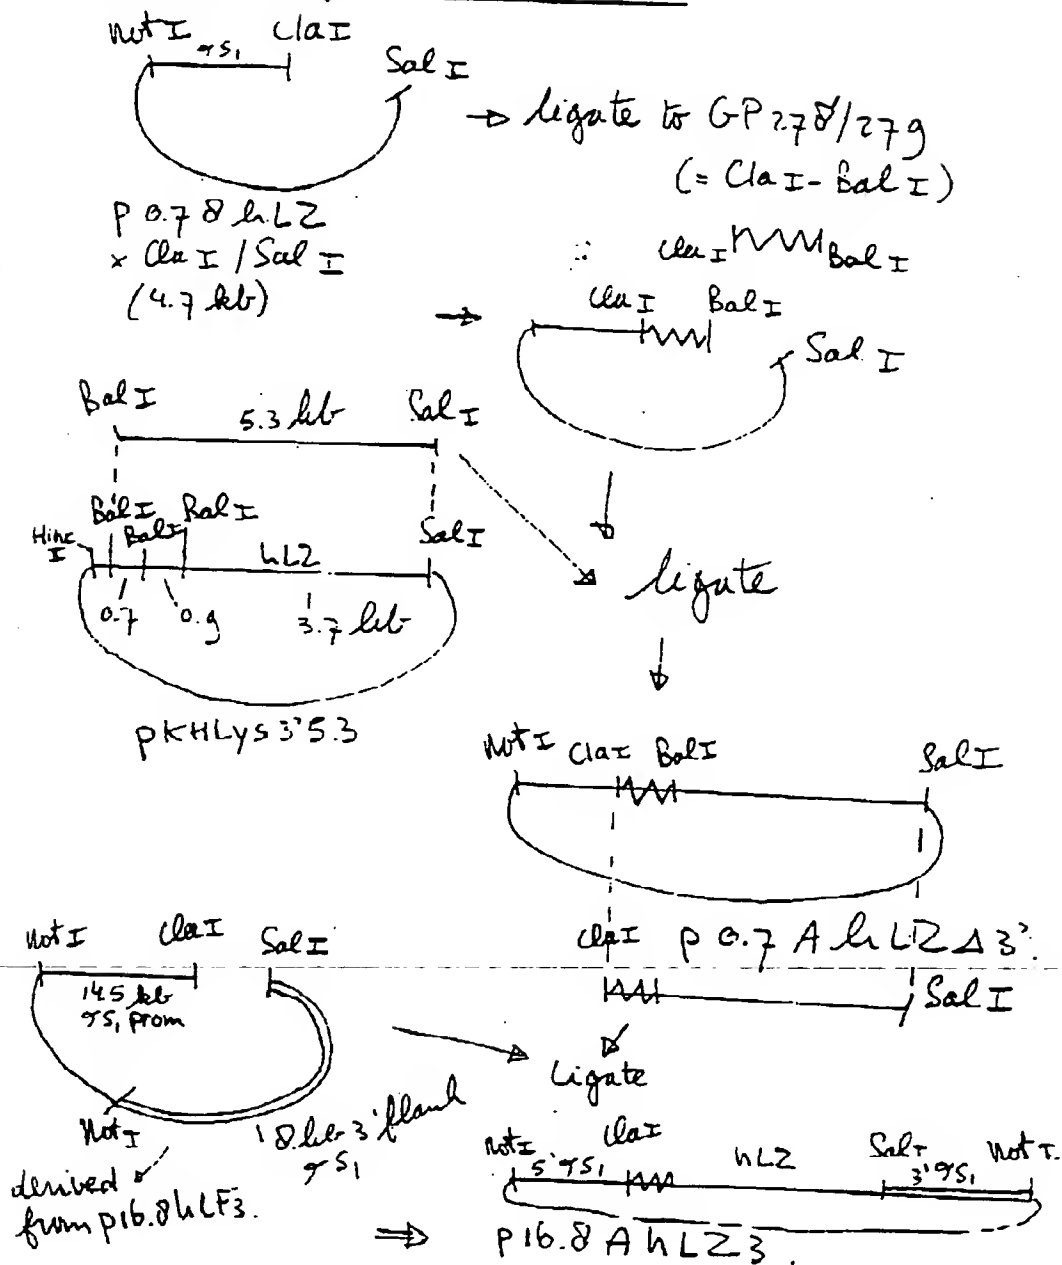 Not I ClaI
αS₁
Sal I
→ ligate to GP278/279
(= Cla I - Bal I)
p 0.7 8 hLZ
x Cla I / Sal I
(4.7 kb)
∴ Cla I Bal I
→
Cla I Bal I
Sal I
Bal I 5.3 kb Sal I
Hinc I Bal I Bal I Bal I
hLZ
Sal I
0.7 0.9 3.7 kb
pKHLys3'5.3
ligate
Not I Cla I Bal I Sal I
p 0.7 A hLZ Δ3'.
Cla I Sal I
Not I Cla I Sal I
14.5 kb
αS₁ prom
Not I
8 kb 3' flank
αS₁
derived
from p16.8hLF3.
Ligate
Not I Cla I Sal I Not I.
5' αS₁ hLZ 3' αS₁
⇒ p16.8 A hLZ3.